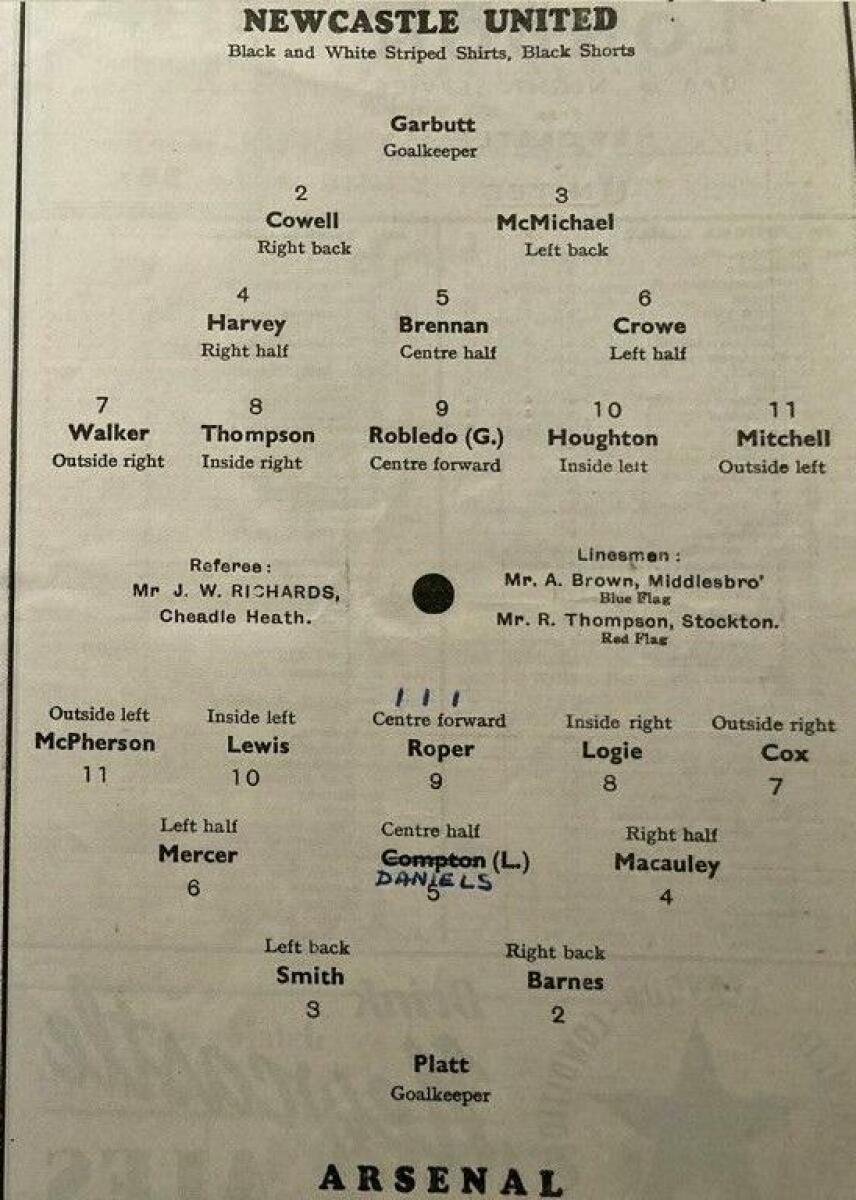 NEWCASTLE UNITED
Black and White Striped Shirts, Black Shorts
Garbutt
Goalkeeper
2 3
Cowell McMichael
Right back Left back
4 5 6
Harvey Brennan Crowe
Right half Centre half Left half
7 8 9 10 11
Walker Thompson Robledo (G.) Houghton Mitchell
Outside right Inside right Centre forward Inside left Outside left
Referee:
Mr J. W. RICHARDS,
Cheadle Heath.
Linesmen:
Mr. A. Brown, Middlesbro'
Blue Flag
Mr. R. Thompson, Stockton.
Red Flag
111
Outside left Inside left Centre forward Inside right Outside right
McPherson Lewis Roper Logie Cox
11 10 9 8 7
Left half Centre half Right half
Mercer Compton (L.) Macauley
DANIELS
6 5 4
Left back Right back
Smith Barnes
3 2
Platt
Goalkeeper
ARSENAL